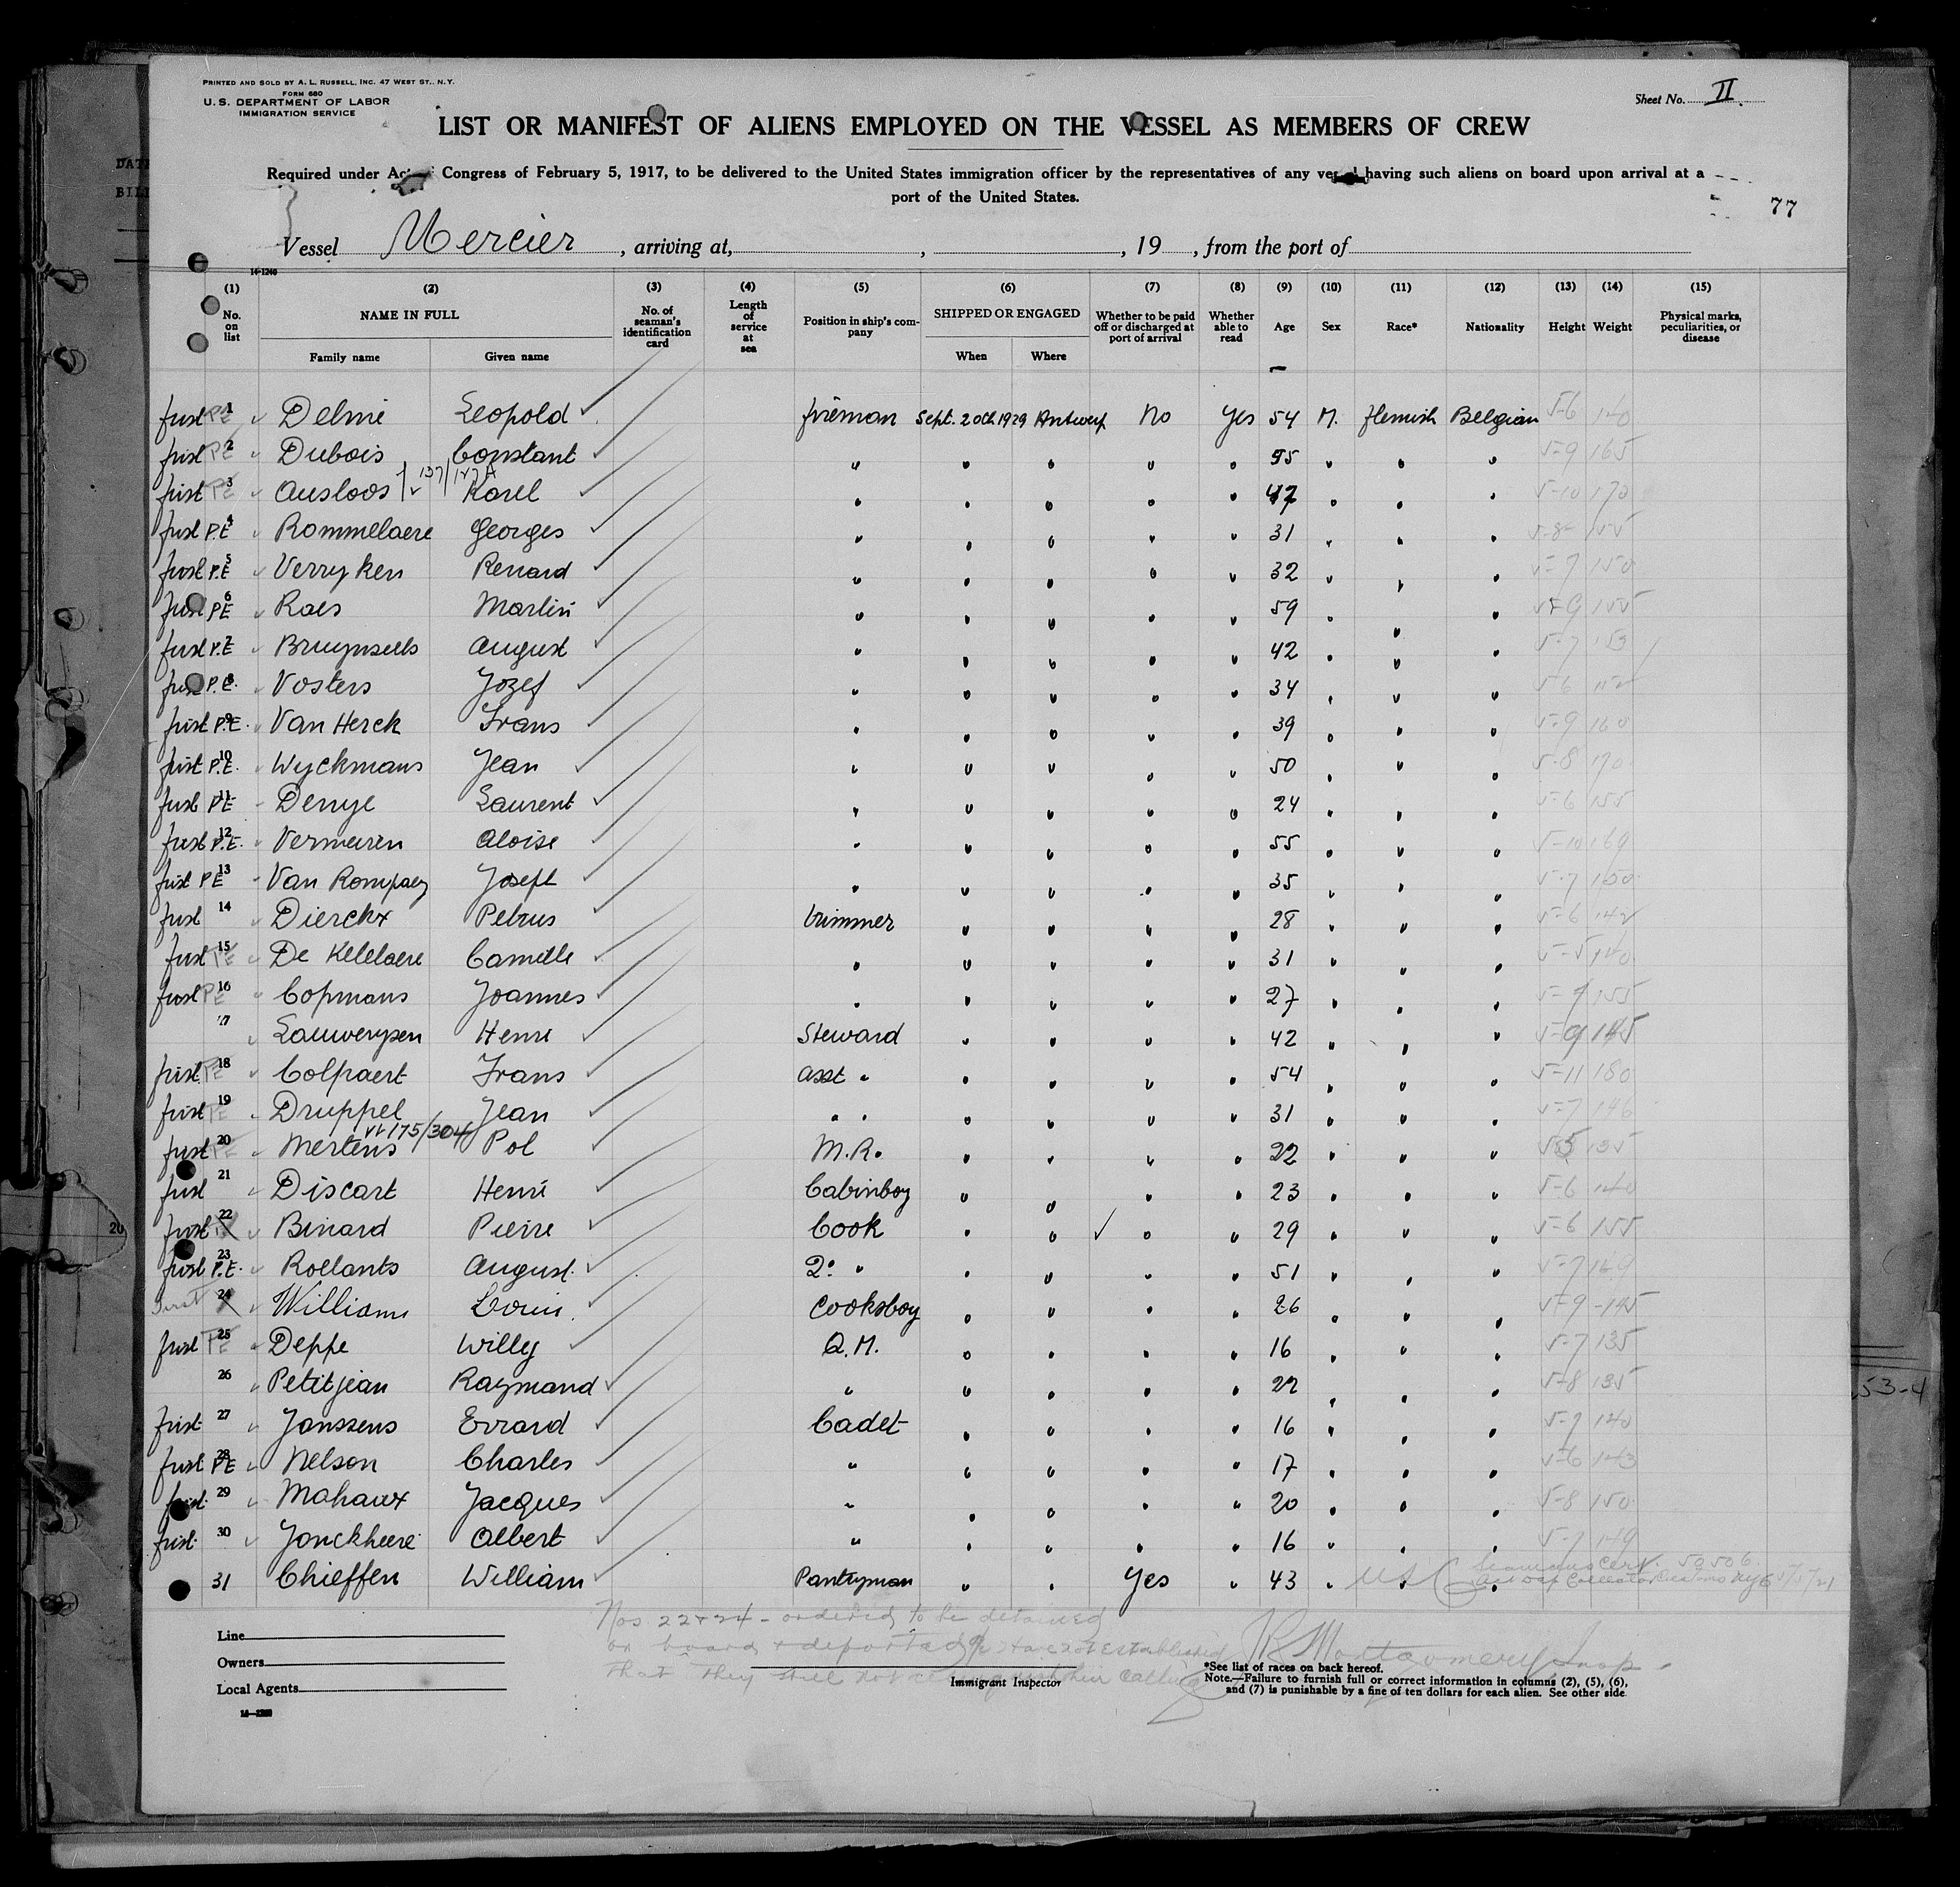 PRINTED AND SOLD BY A. L. RUSSELL, INC. 47 WEST ST., N.Y.
FORM 680
U. S. DEPARTMENT OF LABOR
IMMIGRATION SERVICE
Sheet No. II
LIST OR MANIFEST OF ALIENS EMPLOYED ON THE VESSEL AS MEMBERS OF CREW
Required under Act Congress of February 5, 1917, to be delivered to the United States immigration officer by the representatives of any vessel having such aliens on board upon arrival at a
port of the United States.
77
Vessel Mercier, arriving at, , 19 , from the port of
14-1240
(1) No. on list (2) NAME IN FULL Family name Given name (3) No. of seaman's identification card (4) Length of service at sea (5) Position in ship's company (6) SHIPPED OR ENGAGED When Where (7) Whether to be paid off or discharged at port of arrival (8) Whether able to read (9) Age (10) Sex (11) Race* (12) Nationality (13) Height (14) Weight (15) Physical marks, peculiarities, or disease
first PE 1 Delmé Leopold fireman Sept. 20th 1929 Antwerp No Yes 54 M. Flemish Belgian 5-6 140
first PE 2 Dubois Constant " " " " " " " " 5-9 165
first PE 3 Ausloos 137/127A Karel " " " " " 47 " " " 5-10 170
first P.E 4 Rommelaere Georges " " " " " 31 " " " 5-8
first P.E 5 Verryken Renard " " " " " 32 " " " 5-7 150
first PE 6 Raes Martin " " " " " 59 " " " 5-9 155
first P.E 7 Bruynseels August " " " " " 42 " " " 5-7 153
first P.E. 8 Vosters Jozef " " " " " 34 " " " 5-6
first P.E. 9 Van Herck Frans " " " " " 39 " " " 5-9 160
first P.E. 10 Wyckmans Jean " " " " " 50 " " " 5-8 170
first PE 11 Denye Laurent " " " " " 24 " " " 5-6 155
first P.E. 12 Vermeiren Aloise " " " " " 55 " " " 5-10 169
first PE 13 Van Rompaey Joseph " " " " " 35 " " " 5-7 150
first 14 Dierckx Petrus trimmer " " " " 28 " " " 5-6 142
first PE 15 De Ketelaere Camille " " " " " 31 " " " 5-5 140
first PE 16 Copmans Joannes " " " " " 27 " " " 5-9 155
17 Lauwerysen Henri Steward " " " " 42 " " " 5-9 145
first PE 18 Colpaert Frans asst " " " " " 54 " " " 5-11 180
first PE 19 Druppel Jean " " " " " " 31 " " " 5-7 146
first PE 20 Mertens 175/304 Pol M.R. " " " " 22 " " " 5-5 135
first 21 Discart Henri Cabinboy " " " " 23 " " " 5-6 140
first 22 Binard Pierre Cook " " " " 29 " " " 5-6 155
first P.E. 23 Roelants August 2º " " " " " 51 " " " 5-7 169
first 24 Williams Louis Cooksboy " " " " 26 " " " 5-9 145
first PE 25 Deppe Willy Q.M. " " " " 16 " " " 5-7 135
26 Petitjean Raymond " " " " " 22 " " " 5-8 135
first 27 Janssens Errard Cadet " " " " 16 " " " 5-9 140
first PE 28 Nelson Charles " " " " " 17 " " " 5-6 143
first 29 Mahaux Jacques " " " " " 20 " " " 5-8 150
first 30 Jonckheere Albert " " " " " 16 " " " 5-7 149
31 Chieffen William Pantryman " " Yes " 43 " USC Seamans Cert. 50506
Nos 22+24 - ordered to be detained
on board & deported Have not established
that they shall not their calling
Line
Owners
Local Agents
Immigrant Inspector
R Montgomery Insp.
*See list of races on back hereof.
Note.—Failure to furnish full or correct information in columns (2), (5), (6),
and (7) is punishable by a fine of ten dollars for each alien. See other side.
20
53-4